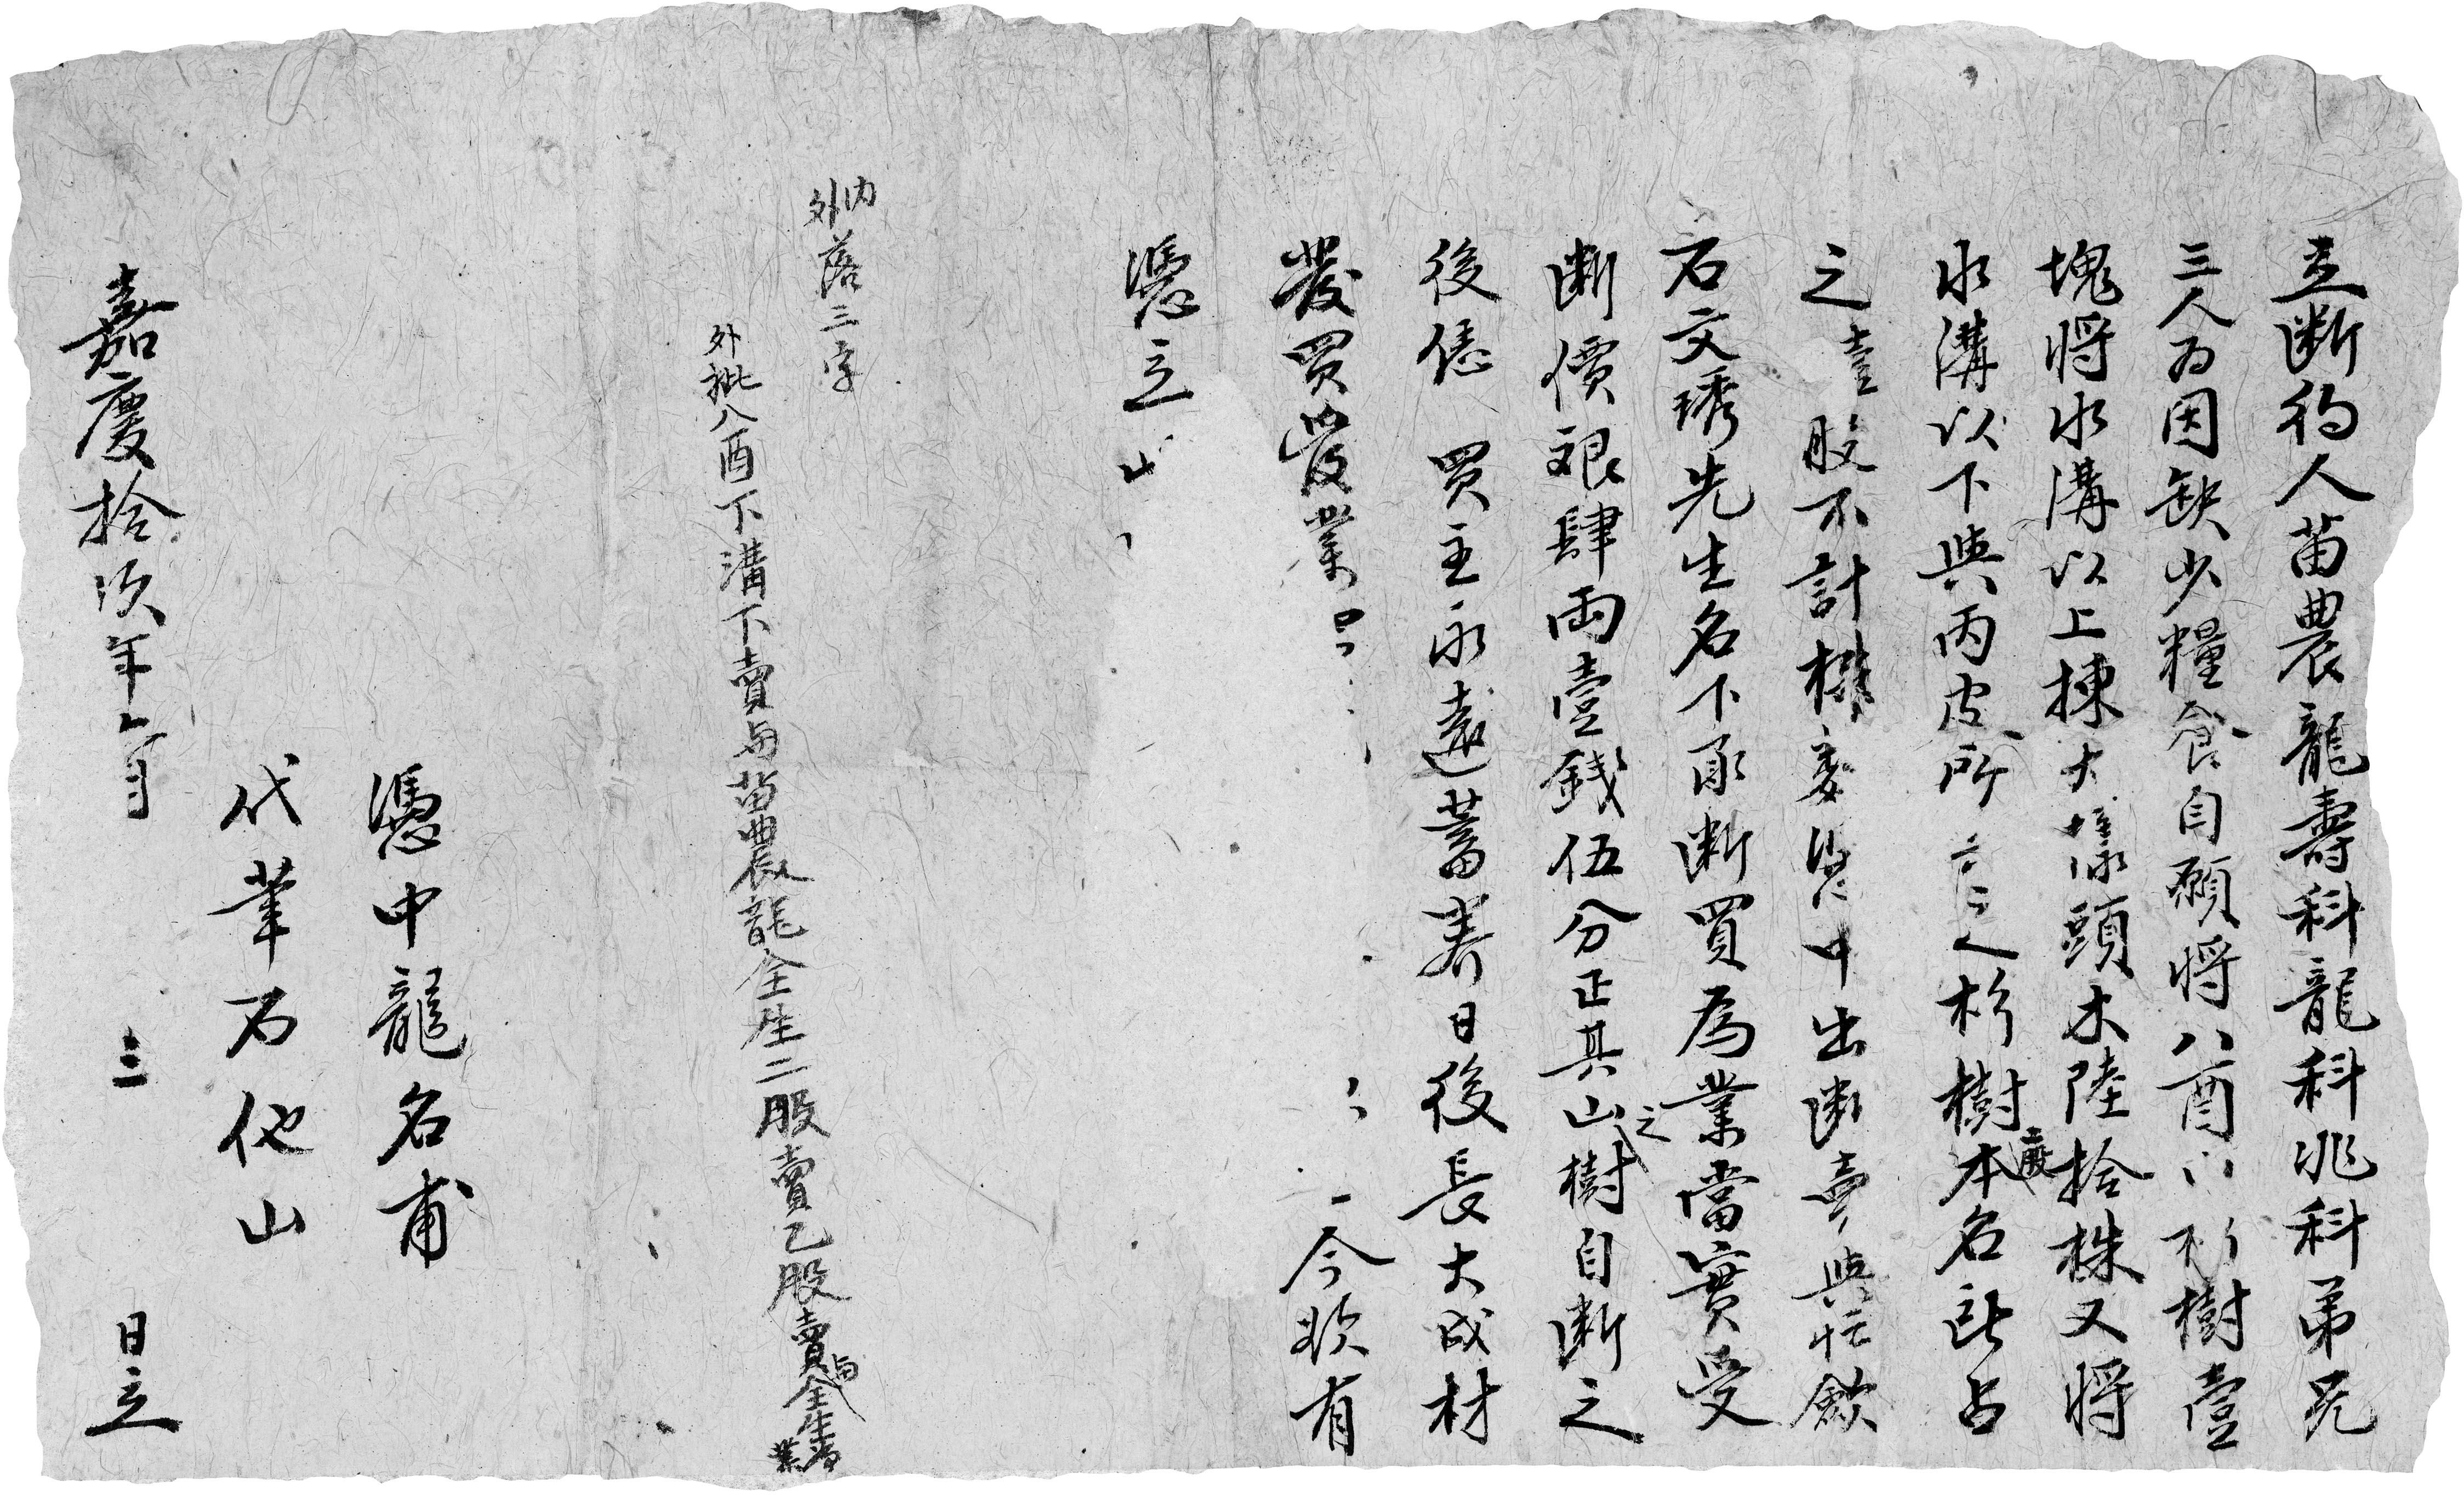 立断約人苗農龍壽科龍科兆科弟兄
三人為因缺少糧食自願將八酉杉樹壹
塊將水溝以上揀大樣頭木陸拾株又將
水溝以下與丙皮所之杉樹二股本名所占
之壹股不計根數憑中出断賣與忙飲
石文琇先生名下承断買為業當實受
断價艰肆兩壹錢伍分正其山之樹自断之
後任買主永遠蓄养日後長大成材
發買發業今欲有
憑立
内外落三字
外批八酉下溝下賣与苗農龍全生二股賣乙股賣与全生為業
憑中龍名甫
代筆石他山
嘉慶拾玖年六月 三 日立